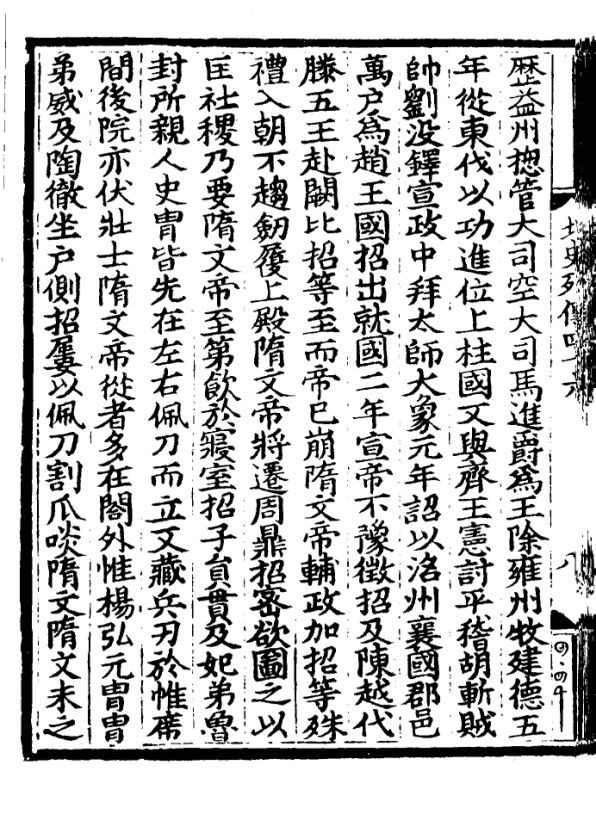 歷益州揔管大司空大司馬進爵爲王除雍州牧建德五
年從東伐以功進位上柱國又與齊王憲討平稽胡斬賊
帥劉没鐸宣政中拜太師大象元年詔以洺州襄國郡邑
萬户爲趙王國招出就國二年宣帝不豫徵招及陳越代
滕五王赴闕比招等至而帝已崩隋文帝輔政加招等殊
禮入朝不趨劒履上殿隋文帝將遷周鼎招密欲圖之以
匡社稷乃要隋文帝至第飲於寢室招子員貫及妃弟魯
封所親人史胄皆先在左右佩刀而立又藏兵刃於帷席
間後院亦伏壯士隋文帝從者多在閤外惟楊弘元胄胄
弟威及陶徹坐户側招屢以佩刀割瓜啖隋文隋文未之
北史列傳四十六
八